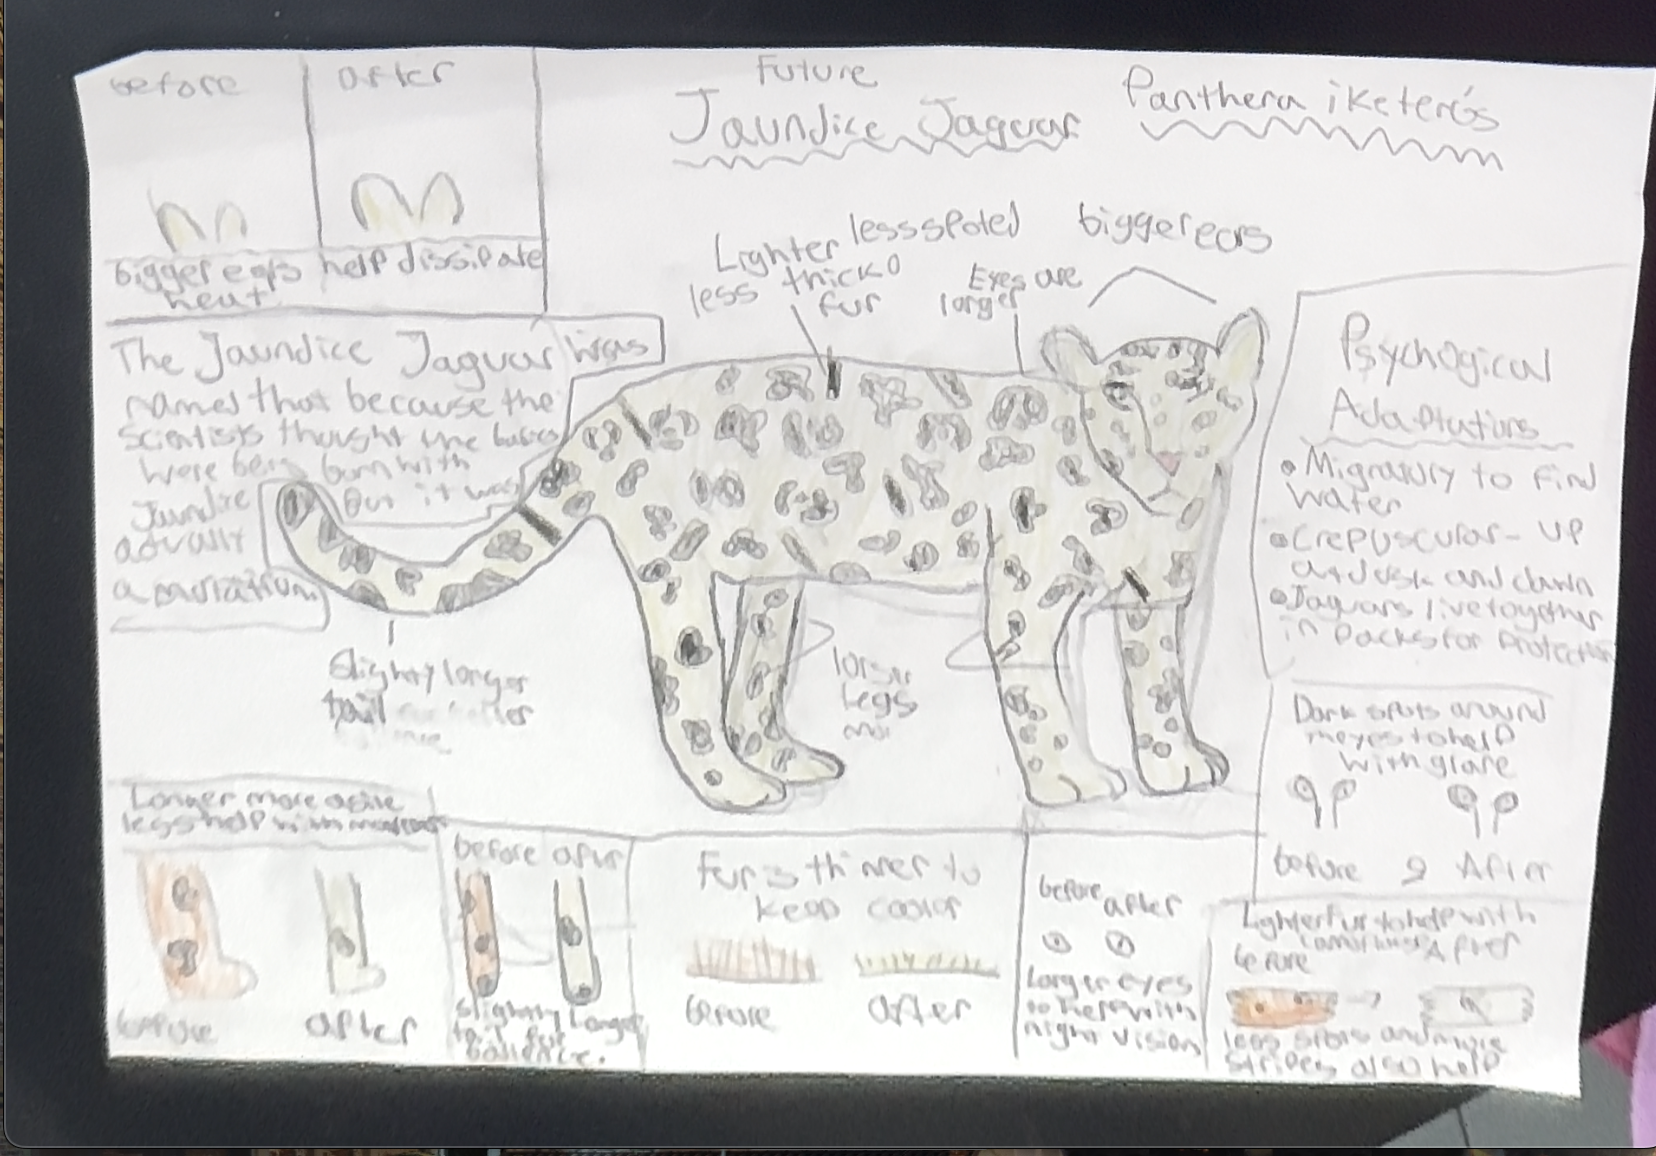 before
after
bigger ears help dissipate
heat
Future
Jaundice Jaguar
Panthera ikterós
Lighter
less thick
fur
less spoted
Eyes are
larger
bigger ears
The Jaundice Jaguar was
named that because the
scientists thought the babies
were born with
Jaundice But it was
actually
a mutation
Slightly longer
tail
legs
Psychogical
Adaptations
• Migratory to find
water
• Crepuscular - up
at dusk and dawn
• Jaguars live together
in packs for protection
Dark spots around
eyes to help
with glare
before & After
Longer more agile
legs help with
before after
before after
Slightly longer
tail for
balence.
Fur is thinner to
keep cooler
before after
before after
Larger eyes
to help with
night vision
Lighter fur to help with
before After
less spots and more
stripes also help